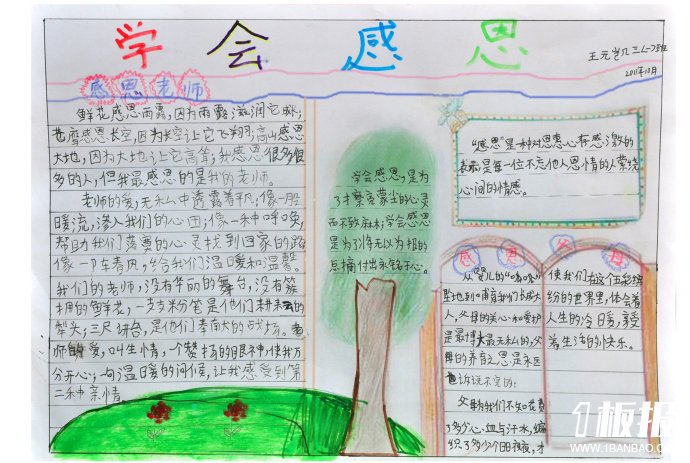 学会感恩
王元岂几三(一)班
2011年10月
感恩老师
鲜花感恩雨露,因为雨露滋润它成长;
苍鹰感恩长空,因为长空让它飞翔;高山感恩
大地,因为大地让它高耸;我感恩很多很
多的人,但我最感恩的是我的老师。
老师的爱,无私中透露着平凡,像一股
暖流,渗入我们的心田;像一种呼唤,
帮助我们落寞的心灵找到回家的路
像一阵春风,给我们温暖和温馨。
我们的老师,没有华丽的舞台,没有簇
拥的鲜花,一支支粉笔是他们耕耘的
犁头;三尺讲台,是他们奉献的战场。老
师的爱,叫生情,一个赞扬的眼神,使我万
分开心;一句温暖的问候,让我感受到第
二种亲情。
学会感恩,是为
了擦亮蒙尘的心灵
而不致麻木;学会感恩
是为了将无以为报的
点滴付出永铭于心。
“感恩”是一种对恩惠心存感激的
表示是每一位不忘他人恩情的人萦绕
心间的情感。
感恩父母
从婴儿的“哇哇
坠地到哺育我们长成大
人,父母的关心和爱护
是最博大最无私的,父
母的养育之恩是永远
也诉说不完的:
父母为我们不知花费
了多少心血与汗水,编
织了多少个日日夜夜,才
使我们在这个五彩缤
纷的世界里,体会着
人生的冷暖,享受
着生活的快乐。
1板报
WWW.1BANBAO.C